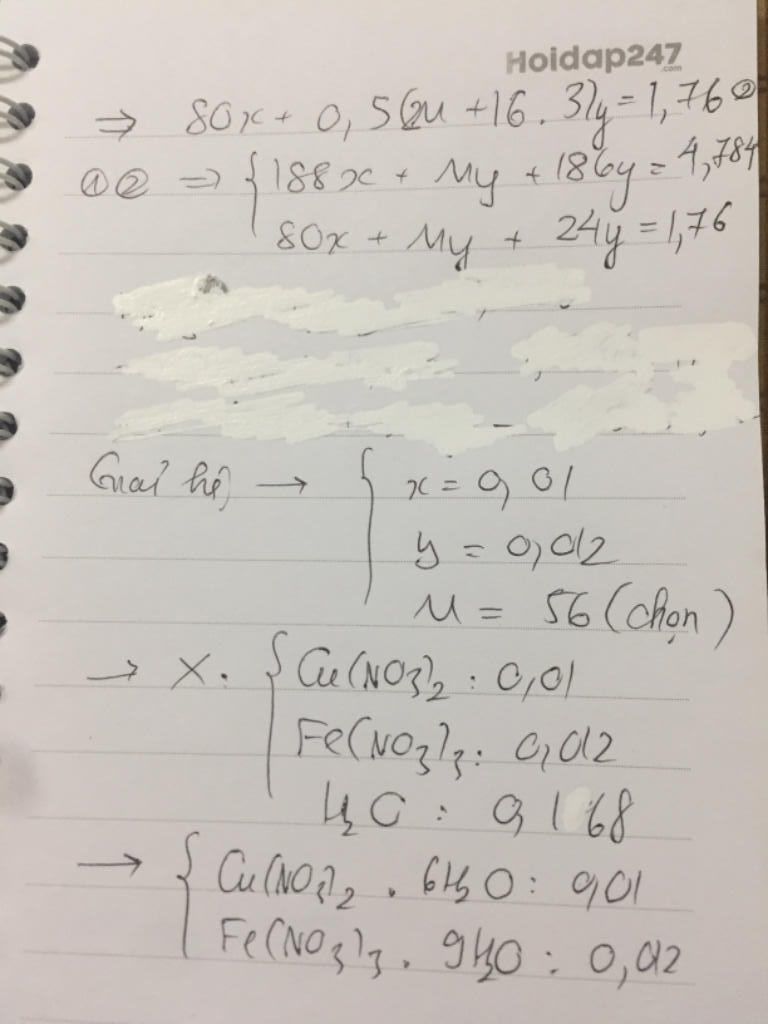 Hoidap247
.com
⇒ 80x + 0,5(2M + 16.3)y = 1,76 ②
①② ⇒ { 188x + My + 186y = 4,784
80x + My + 24y = 1,76
Giải hệ → { x = 0,01
y = 0,012
M = 56 (chọn)
→ X: { Cu(NO3)2 : 0,01
Fe(NO3)3 : 0,012
H2O : 0,168
→ { Cu(NO3)2 . 6H2O : 0,01
Fe(NO3)3 . 9H2O : 0,012